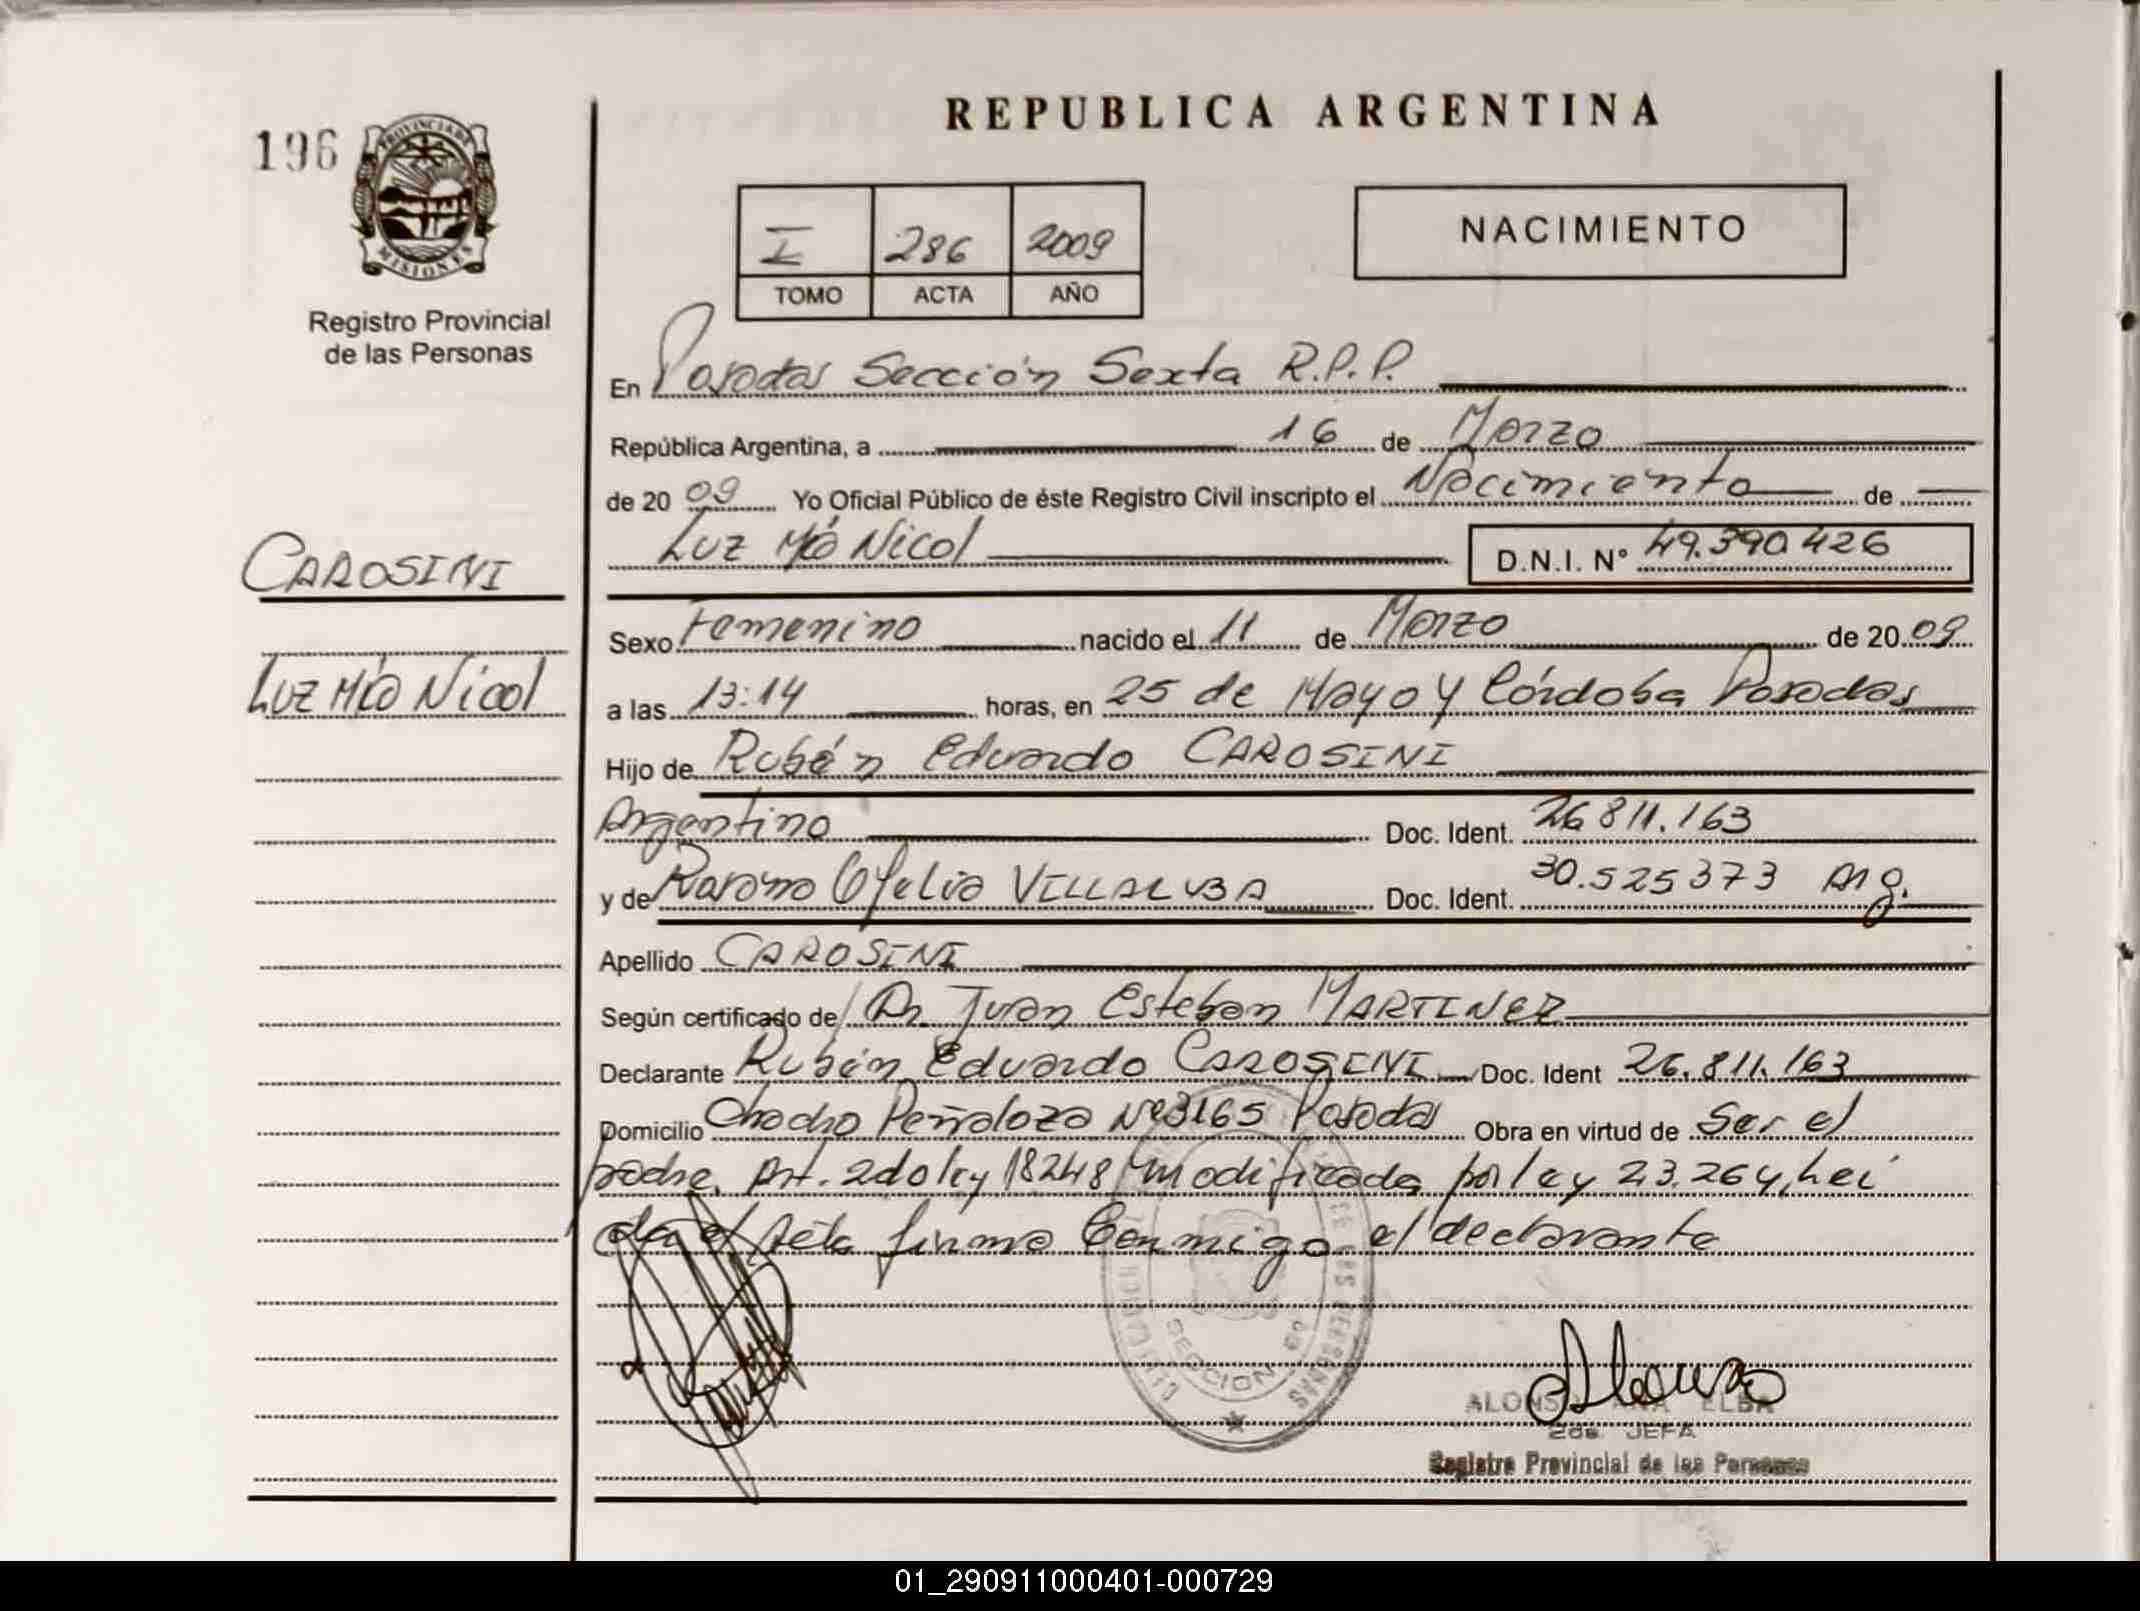 196
PROVINCIA DE
MISIONES
Registro Provincial
de las Personas
REPUBLICA ARGENTINA
I 286 2009
TOMO ACTA AÑO
NACIMIENTO
En Posadas Sección Sexta R.P.P.
República Argentina, a 16 de Marzo
de 20 09 Yo Oficial Público de éste Registro Civil inscripto el Nacimiento de
Luz Mía Nicol D.N.I. N° 49.390.426
CAROSINI
Luz Mía Nicol
Sexo Femenino nacido el 11 de Marzo de 20 09
a las 13:14 horas, en 25 de Mayo y Córdoba Posadas
Hijo de Rubén Eduardo CAROSINI
Argentino Doc. Ident. 26.811.163
y de Rosana Ofelia VILLALVBA Doc. Ident. 30.525373 Arg.
Apellido CAROSINI
Según certificado de Dr. Juan Esteban MARTINEZ
Declarante Rubén Eduardo CAROSINI Doc. Ident 26.811.163
Domicilio Chacho Peñaloza Nº3165 Posadas Obra en virtud de Ser el
padre. Art. 2do ley 18248 modificada por ley 23.264, Leí
da el Acta firma Conmigo el declarante
SECCION 6ª
ALONSO ANA ELBA
2da. JEFA
Registro Provincial de las Personas
01_290911000401-000729